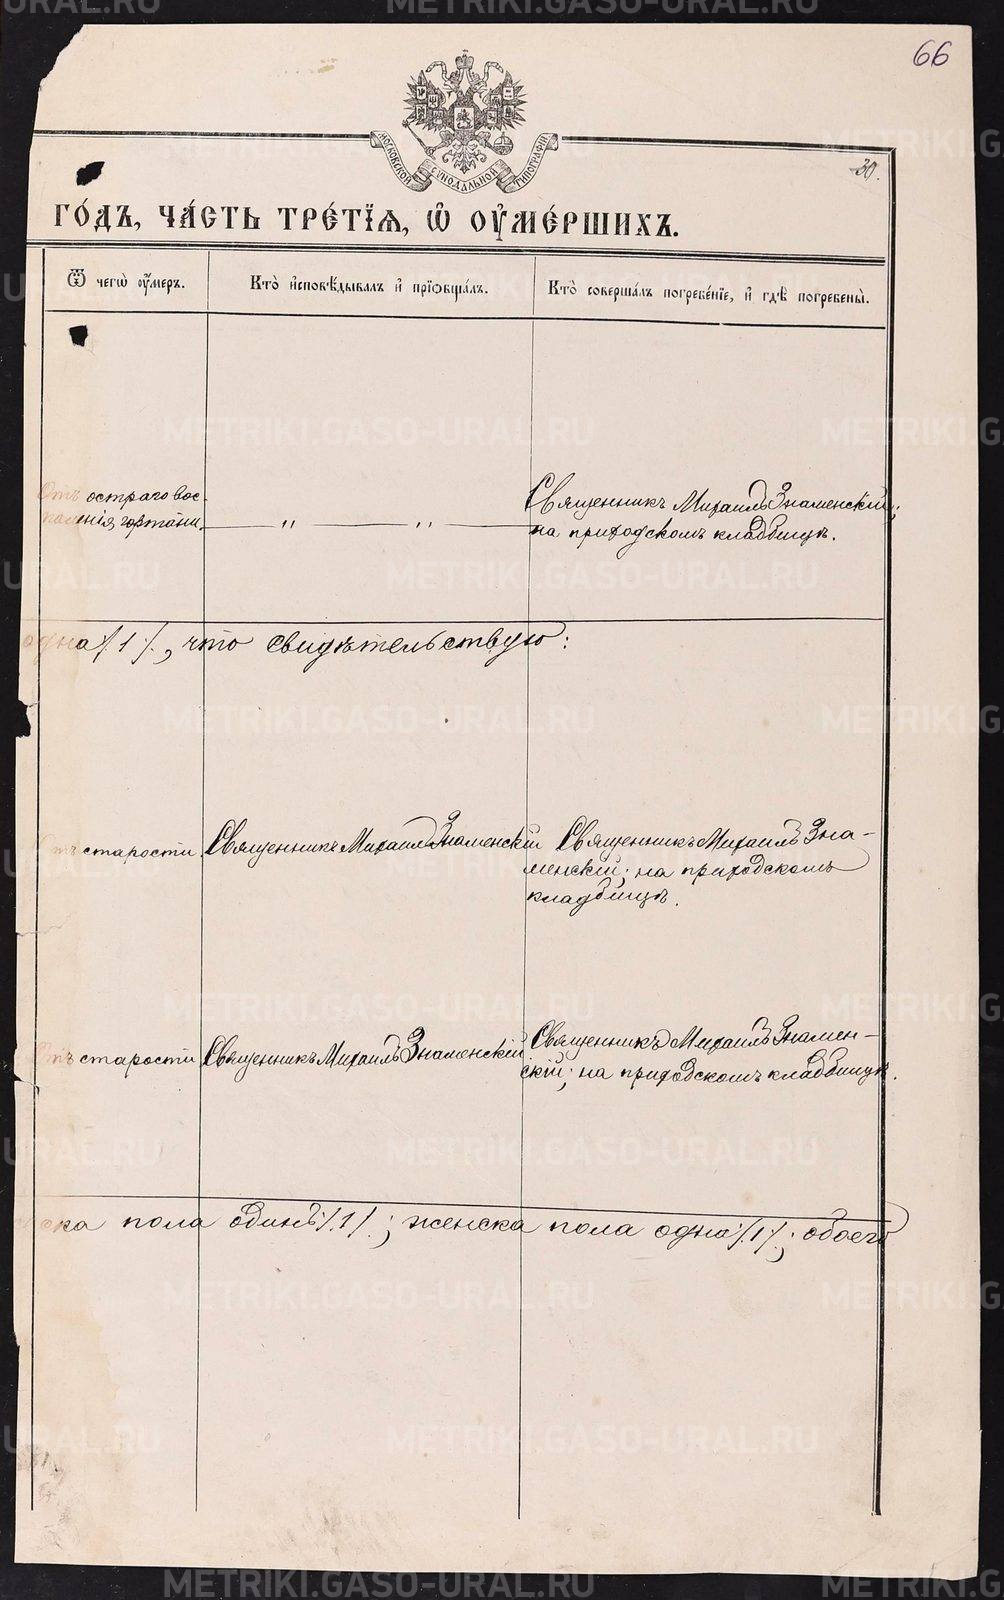 66
МОСКОВСКОЙ СѴНОДАЛЬНОЙ ТИПОГРАФІИ
30.
ГО́ДЪ, ЧА́СТЬ ТРЕ́ТІѦ, Ѡ҆ ОУ҆МЕ́РШИХЪ.
Ѿ чегѡ̀ оу҆́меръ.
Кто̀ и҆сповѣ́дывалъ и҆ прїѡбща́лъ.
Кто̀ соверша́лъ погребе́нїе, и҆ гдѣ̀ погребены̀.
Отъ остраго вос-
паленія гортани.
„ „
Священникъ Михаилъ Знаменскій;
на приходскомъ кладбищѣ.
одна /1/., что свидѣтельствую:
Отъ старости.
Священникъ Михаилъ Знаменскій
Священникъ Михаилъ Зна-
менскій; на приходскомъ
кладбищѣ.
Отъ старости
Священникъ Михаилъ Знаменскій
Священникъ Михаилъ Знамен-
скій; на приходскомъ кладбищѣ.
ска пола одинъ /.1/.; женска пола одна /.1/.; обоего
METRIKI.GASO-URAL.RU